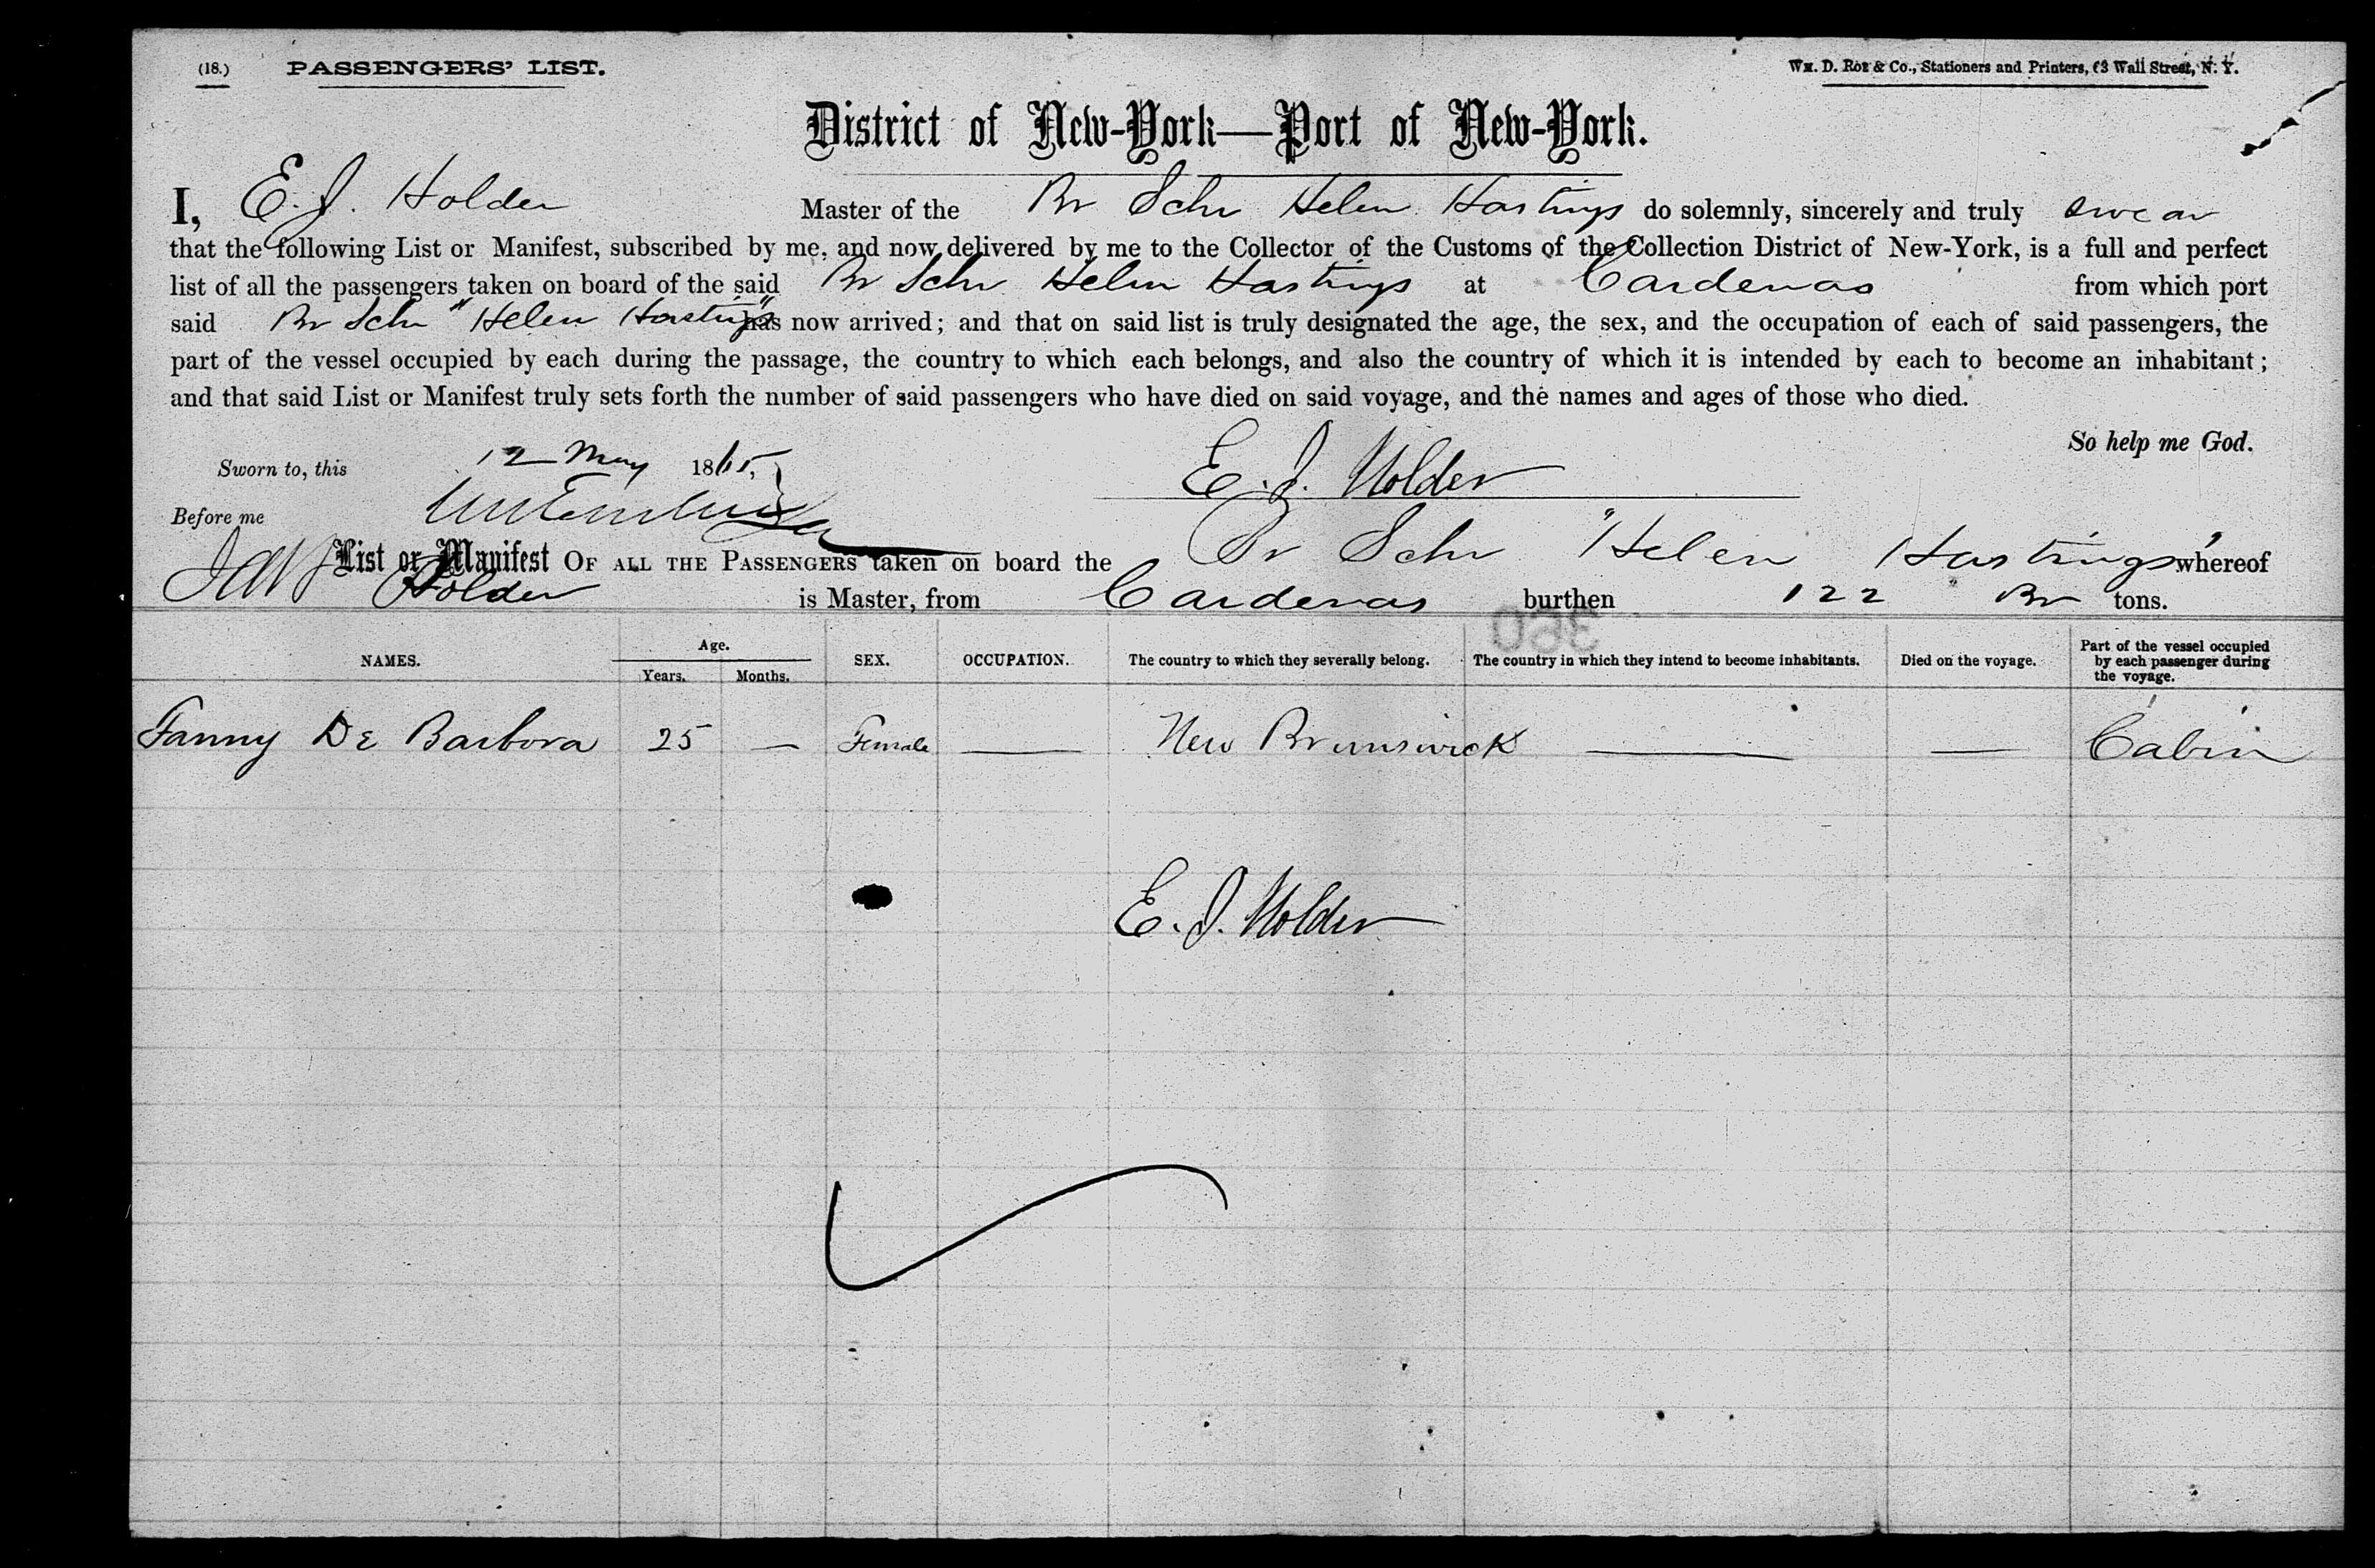 (18.) PASSENGERS' LIST. Wm. D. Roe & Co., Stationers and Printers, 63 Wall Street, N. Y.
District of New-York—Port of New-York.
I, E. J. Holder Master of the Br Schr Helen Hastings do solemnly, sincerely and truly swear
that the following List or Manifest, subscribed by me, and now delivered by me to the Collector of the Customs of the Collection District of New-York, is a full and perfect
list of all the passengers taken on board of the said Br Schr Helen Hastings at Cardenas from which port
said Br Schr "Helen Hastings" has now arrived; and that on said list is truly designated the age, the sex, and the occupation of each of said passengers, the
part of the vessel occupied by each during the passage, the country to which each belongs, and also the country of which it is intended by each to become an inhabitant;
and that said List or Manifest truly sets forth the number of said passengers who have died on said voyage, and the names and ages of those who died.
So help me God.
Sworn to, this 12 May 1865, E. J. Holder
Before me
List or Manifest OF ALL THE PASSENGERS taken on board the Br Schr "Helen Hastings" whereof
Holder is Master, from Cardenas burthen 122 Br tons.
NAMES. Age. Years. Months. SEX. OCCUPATION. The country to which they severally belong. The country in which they intend to become inhabitants. Died on the voyage. Part of the vessel occupied by each passenger during the voyage.
Fanny De Barbora 25 — Female — New Brunswick — — Cabin
E. J. Holder